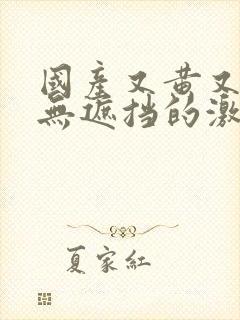 國產又黄又
無遮挡的激
夏家紅